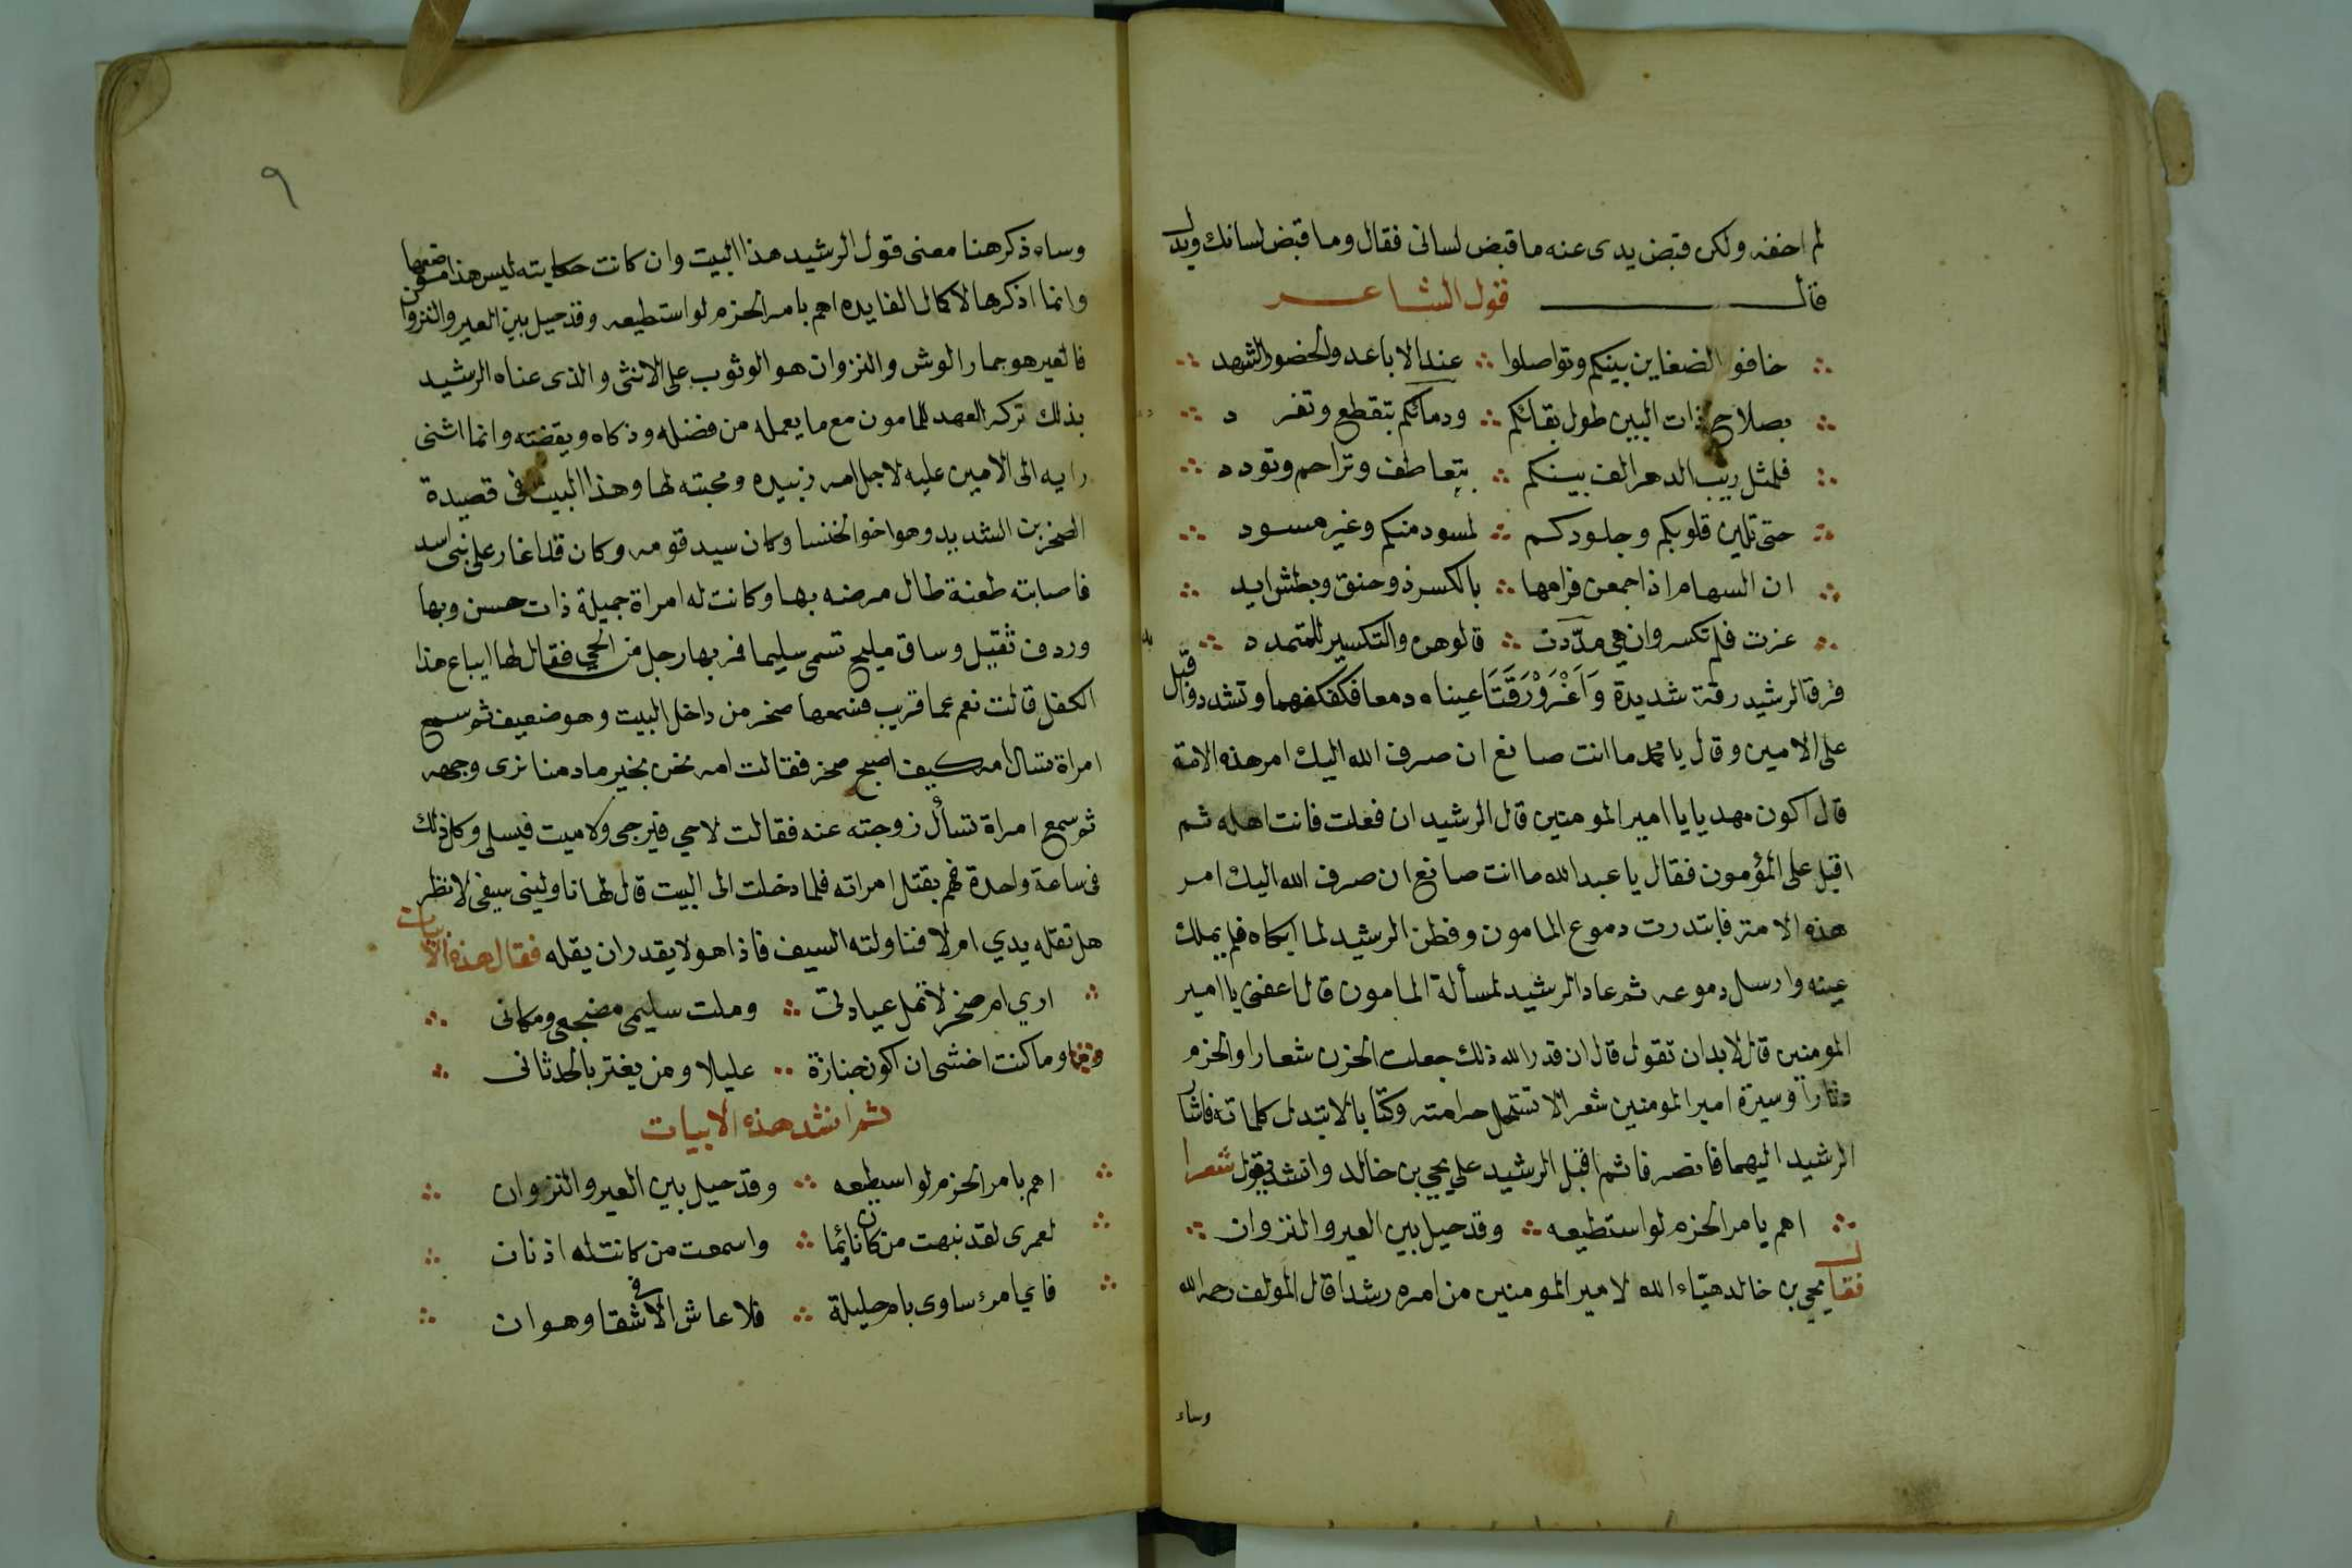 لم اخفه ولكن قبض يدى عنه ما قبض لسانى فقال وما قبض لسانك ويدك
قال قول الشاعر
خافوا الضغاين بينكم وتواصلوا ∴ عند الاباعد والحضور الشهد
بصلاح ذات البين طول بقائكم ∴ ودمائكم بتقطع وتفرد
فلمثل ريب الدهر الف بينكم ∴ بتعاطف وتراحم وتودد
حتى تلين قلوبكم وجلودكم ∴ لمسود منكم وغير مسود
ان السهام اذا جمعن فرامها ∴ بالكسر ذو حنق وبطش ايد
عزت فلم تكسر وان هي مدّدت ∴ قالوهن والتكسير للمتمدد
فرق الرشيد رقة شديدة وَاَغْرَوْرَقَتَا عيناه دمعا فكفكفهما وتشدد واقبل
على الامين وقال يا محمد ما انت صانع ان صرف الله اليك امر هذه الامة
قال اكون مهديا يا امير المومنين قال الرشيد ان فعلت فانت اهله ثم
اقبل على المؤمون فقال يا عبد الله ما انت صانع ان صرف الله اليك امر
هذه الامة فابتدرت دموع المامون وفطن الرشيد لما ابكاه فلم يملك
عينه وارسل دموعه ثم عاد الرشيد لمسألة المامون قال اعفنى يا امير
المومنين قال لا بد ان تقول قال ان قدر الله ذلك جعلت الحزن شعارا والحزم
دثارا وسيرة امير المومنين شعرا لا تستحل حرامته وكتابا لا تبدل كلماته فاشار
الرشيد اليهما فانصرفا ثم اقبل الرشيد على يحيى بن خالد وانشد يقول شعرا
اهم يامر الحزم لو استطيعه ∴ وقد حيل بين العير والنزوان
فقال يحيى بن خالد هيّاء الله لامير المومنين من امره رشدا قال المولف رحمه الله
وساء
٩
وساء ذكر هنا معنى قول الرشيد هذا البيت وان كانت حكايته ليس هذا موضعها
وانما اذكرها لاكمال الفايده اهم بامر الحزم لو استطيعه وقد حيل بين العير والنزوان
فالعير هو حمار الوش والنزوان هو الوثوب على الانثى والذى عناه الرشيد
بذلك تركه العهد للمامون مع ما يعمله من فضله وذكاه ويقضته وانما اثنى
رايه الى الامين عليه لاجل امه زبيده ومحبته لها وهذا البيت فى قصيدة
الصخر بن الشديد وهو اخو الخنسا وكان سيد قومه وكان قد اغار على بنى اسد
فاصابته طعنة طال مرضه بها وكانت له امراة جميلة ذات حسن وبها
وردف ثقيل وساق مليح تسمى سليما فمر بها رجل من الحي فقال لها ايباع هذا
الكفل قالت نعم عما قريب فسمعها صخر من داخل البيت وهو ضعيف ثو سمع
امراة تسال امه كيف اصبح صخر فقالت امه نحن بخير ما دمنا نرى وجهه
ثو سمع امراة تسأل زوجته عنه فقالت لا حي فيرجى ولا ميت فيسلى وكل ذلك
فى ساعة واحدة فهم بقتل امراته فلما دخلت الى البيت قال لها ناولينى سيفى لانظر
هل تقله يدي ام لا فناولته السيف فاذا هو لا يقدر ان يقله فقال هذه الابيات
اري ام صخر لا تمل عيادتى ∴ وملت سليمى مضجعى ومكانى
وما كنت اخشى ان اكون جنازة ∴ عليلا ومن يغتر بالحدثانى
ثم انشد هذه الابيات
اهم بامر الحزم لو اسيطيعه ∴ وقد حيل بين العير والنزوان
لعمرى لقد نبهت من كان نايما ∴ واسمعت من كانت له اذنان
فاي امرء ساوى بام حليلة ∴ فلا عاش الا فى شقا وهوان